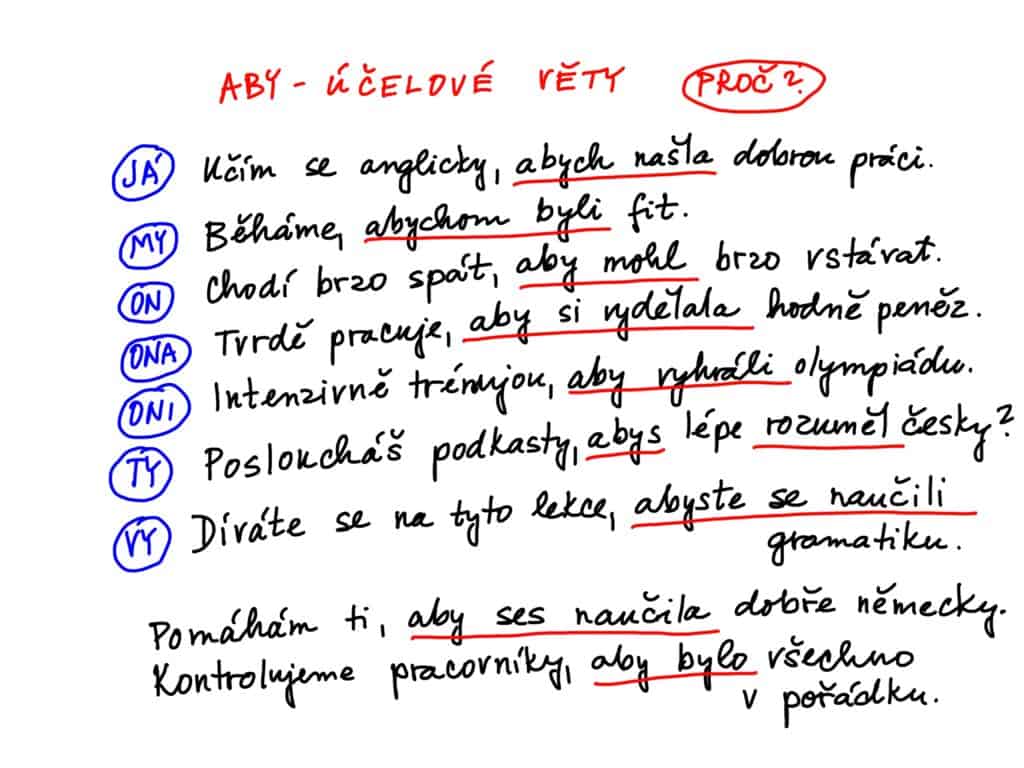 ABY - ÚČELOVÉ VĚTY PROČ?
JÁ Učím se anglicky, abych našla dobrou práci.
MY Běháme, abychom byli fit.
ON Chodí brzo spát, aby mohl brzo vstávat.
ONA Tvrdě pracuje, aby si vydělala hodně peněz.
ONI Intenzivně trénujou, aby vyhráli olympiádu.
TY Posloucháš podkasty, abys lépe rozuměl česky?
VY Díváte se na tyto lekce, abyste se naučili
gramatiku.
Pomáhám ti, aby ses naučila dobře německy.
Kontrolujeme pracovníky, aby bylo všechno
v pořádku.